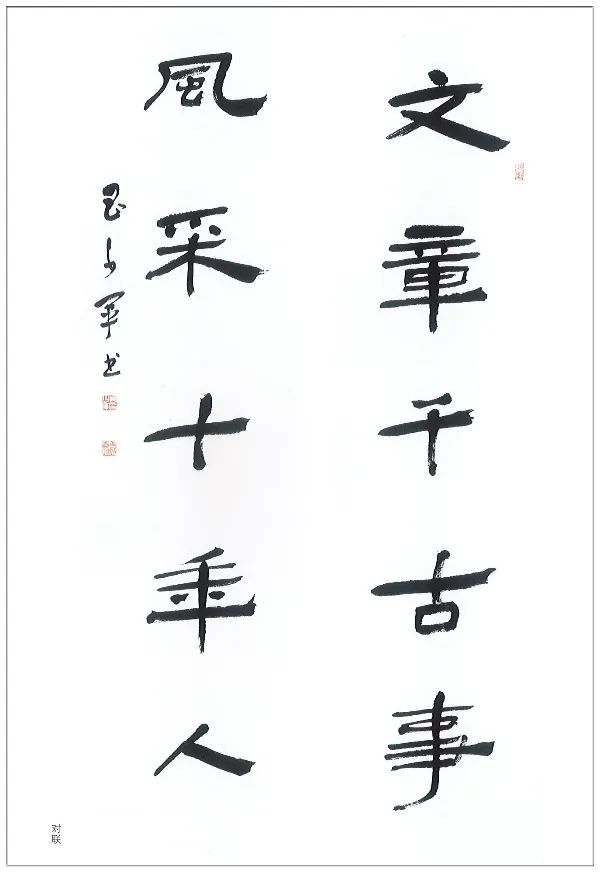 文章千古事
風采十年人
少军书
对联